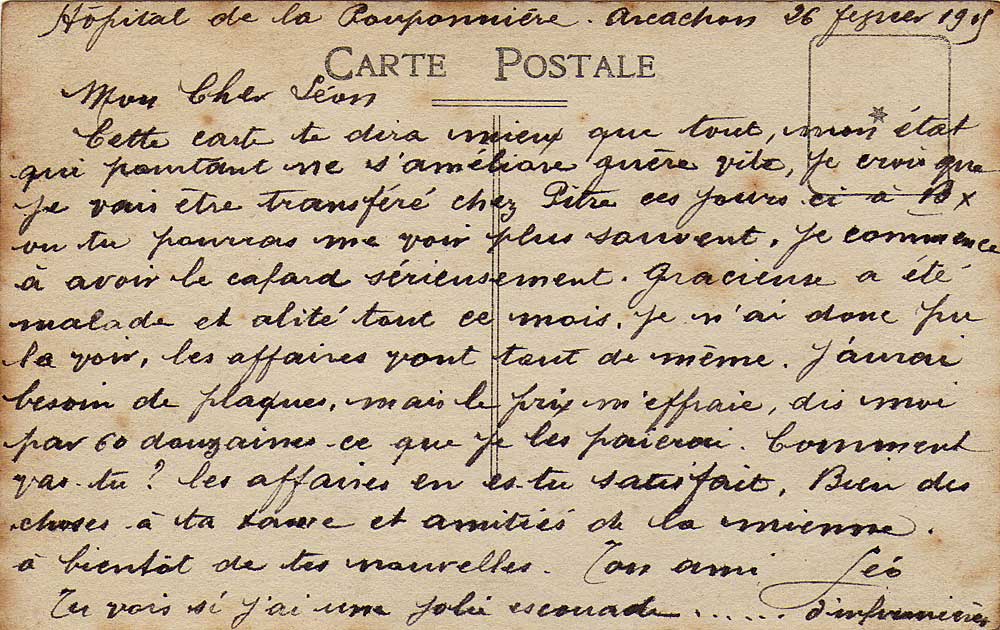 Hôpital de la Pouponnière. Arcachon 26 fevrier 1915
CARTE POSTALE
Mon Cher Léon
Cette carte te dira mieux que tout, mon état
qui pourtant ne s'améliore guère vite, Je crois que
Je vais être transféré chez Pitre ces jours ci à Bx
ou tu pourras me voir plus souvent. Je commence
à avoir le cafard sérieusement. Gracieuse a été
malade et alité tout ce mois. Je n'ai donc pu
la voir, les affaires vont tout de même. J'aurai
besoin de plaques, mais le prix m'effraie, dis moi
par 60 douzaines ce que Je les paierai. Comment
vas-tu? les affaires en es-tu satisfait, Bien des
choses à ta et amitiés de la mienne.
à bientôt de tes nouvelles. Ton ami Léo
Tu vois si j'ai une jolie escouade ...... d'infirmières